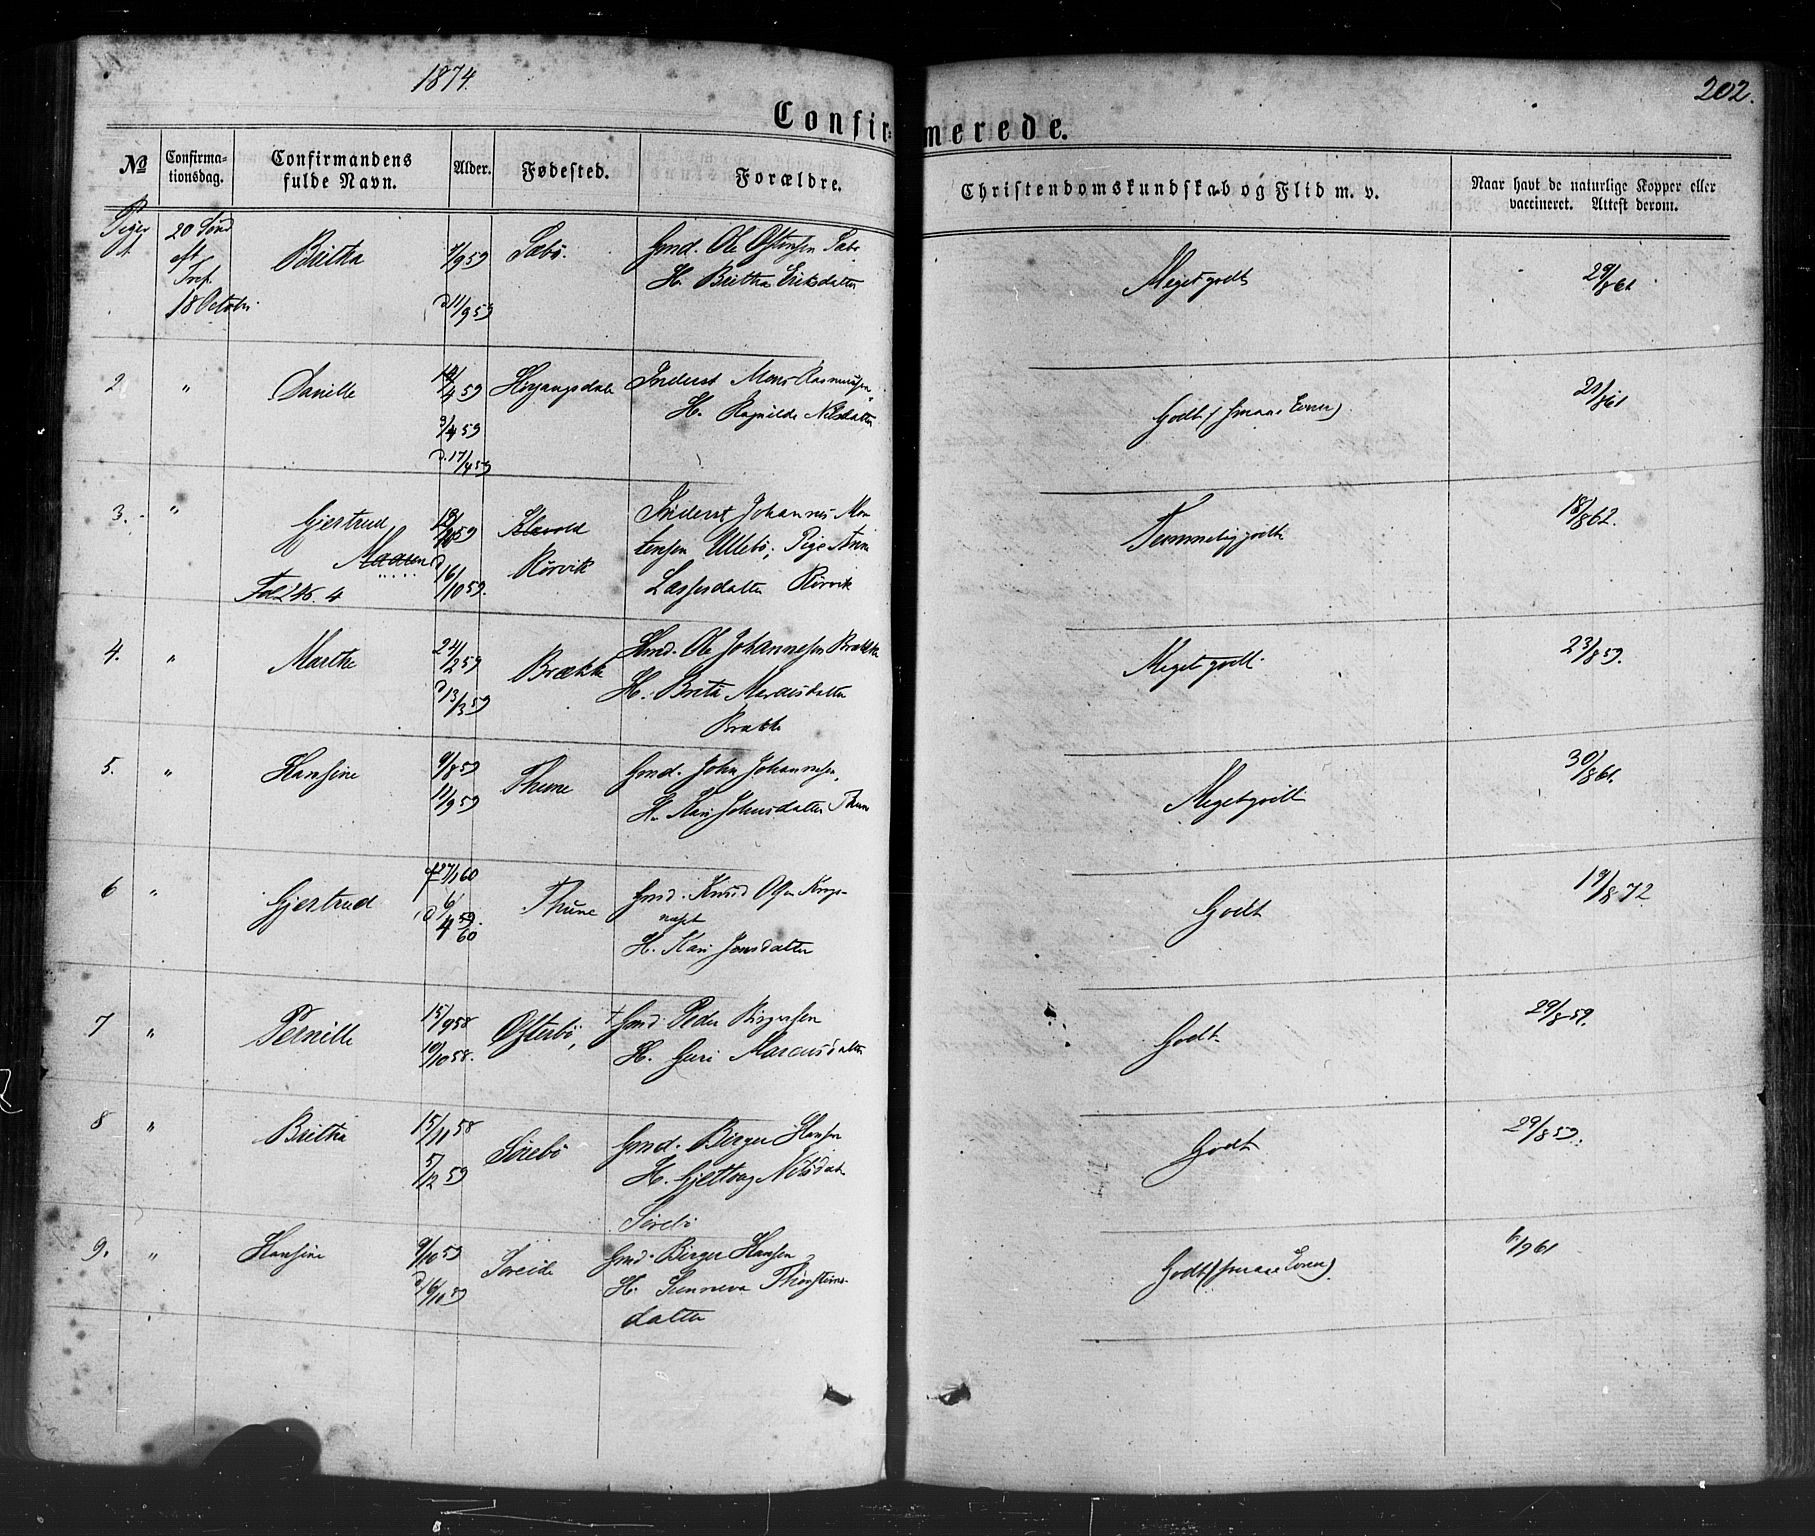 1874.
202.
Confirmerede.
No
Confirmationsdag.
Confirmandens fulde Navn.
Alder.
Fødested.
Forældre.
Christendomskundskab og Flid m. v.
Naar havt de naturlige Kopper eller vaccineret. Attest derom.
Piger
1
20 Sønd
eft
Tref.
18 October
Britha
7/9 59
d 11/9 59
Sæbø.
Gmd. Ole Ostensen Sæbø
H. Britha Eriksdatter
Meget godt
29/8 61
2
"
4 59
3/4 59
d. 17/4 59
Inderst Mons Rasmussen
H. Ragnilde Nilsdatter
Godt (smaae Evner)
21/8 61
3.
"
Gjertrud
Fol 246. 4
d 16/10 59.
Rørvik
Inderst Johannes Mon
tensen Ullebø; Pige Anne
Lassesdatter Rørvik
Temmelig godt
18/8 62.
4.
"
Marthe
21/2 59
d 13/3 59
Brække
Gmd. Ole Johannesen Brække
H. Brita Marcusdatter
Brække
Meget godt.
23/8 59.
5.
"
Hansine
9/8 59
11/9 59
Thune
Gmd. John Johannesen,
H. Kari Johnsdatter Thune
Meget godt
30/8 61.
6
"
Gjertrud
f 27/1 60
d 6/4 59
60
Thune
Gmd. Knud Olsen
H. Kari Jonsdatter
Godt
19/8 72
7
"
Pernille
15/9 58
10/10 58.
Østerbø,
† Gmd. Peder Birgersen
H. Guri Marcusdatter
Godt
29/8 59.
8
"
Britha
15/11 58
5/12 59
Sørebø
Gmd. Birger Hansen
H. Gjettvag Nilsdat
Sørebø
Godt
29/8 59.
9.
"
Hansine
9/10 59
d 16/10 59
Søreide
Gmd. Birger Hansen
H. Sunneva Thorsteins-
datter
Godt (smaae Evner).
6/9 61